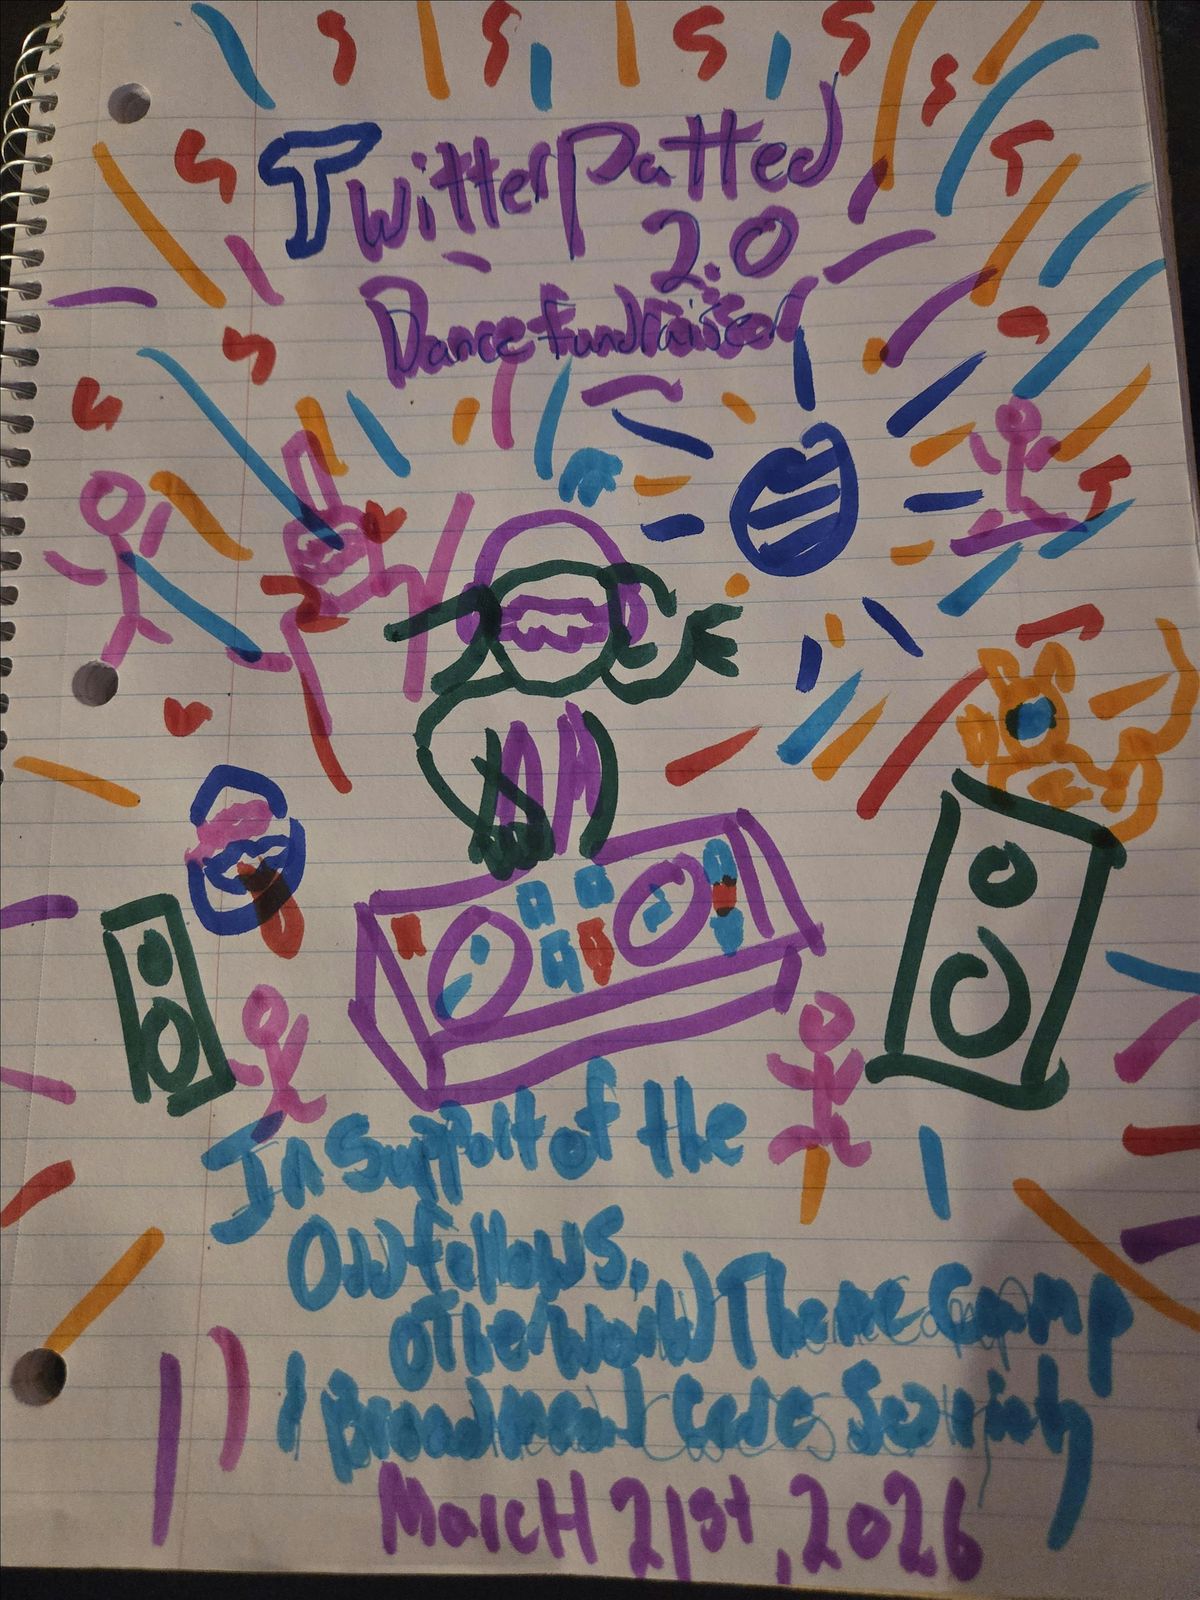 TwitterPatted
2.0
Dance fundraiser
In Support of the
Oddfellows,
OtherWorld Theme Camp
Broadmead Care Society
MarcH 21st, 2026